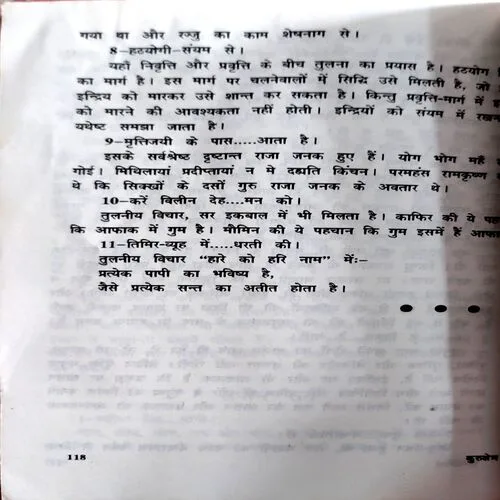 गया था और रज्जु का काम शेषनाग से।
8-हठयोगी-संयम से।
यहाँ निवृत्ति और प्रवृत्ति के बीच तुलना का प्रयास है। हठयोग
का मार्ग है। इस मार्ग पर चलनेवालों में सिद्धि उसे मिलती है, जो
इन्द्रिय को मारकर उसे शान्त कर सकता है। किन्तु प्रवृत्ति-मार्ग में
को मारने की आवश्यकता नहीं होती। इन्द्रियों को संयम में रखन
यथेष्ट समझा जाता है।
9-मृत्तिजयी के पास.....आता है।
इसके सर्वश्रेष्ठ दृष्टान्त राजा जनक हुए हैं। योग भोग महँ
गोई। मिथिलायां प्रदीप्तायां न मे दह्यति किंचन। परमहंस रामकृष्ण
थे कि सिक्खों के दसों गुरु राजा जनक के अवतार थे।
10-करें विलीन देह....मन को।
तुलनीय विचार, सर इकबाल में भी मिलता है। काफिर की ये पह
कि आफाक में गुम है। मौमिन की ये पहचान कि गुम इसमें हैं आफा
11-तिमिर-व्यूह में.....धरती की।
तुलनीय विचार “हारे को हरि नाम” में:-
प्रत्येक पापी का भविष्य है,
जैसे प्रत्येक सन्त का अतीत होता है।
118
कुरुक्षेत्र